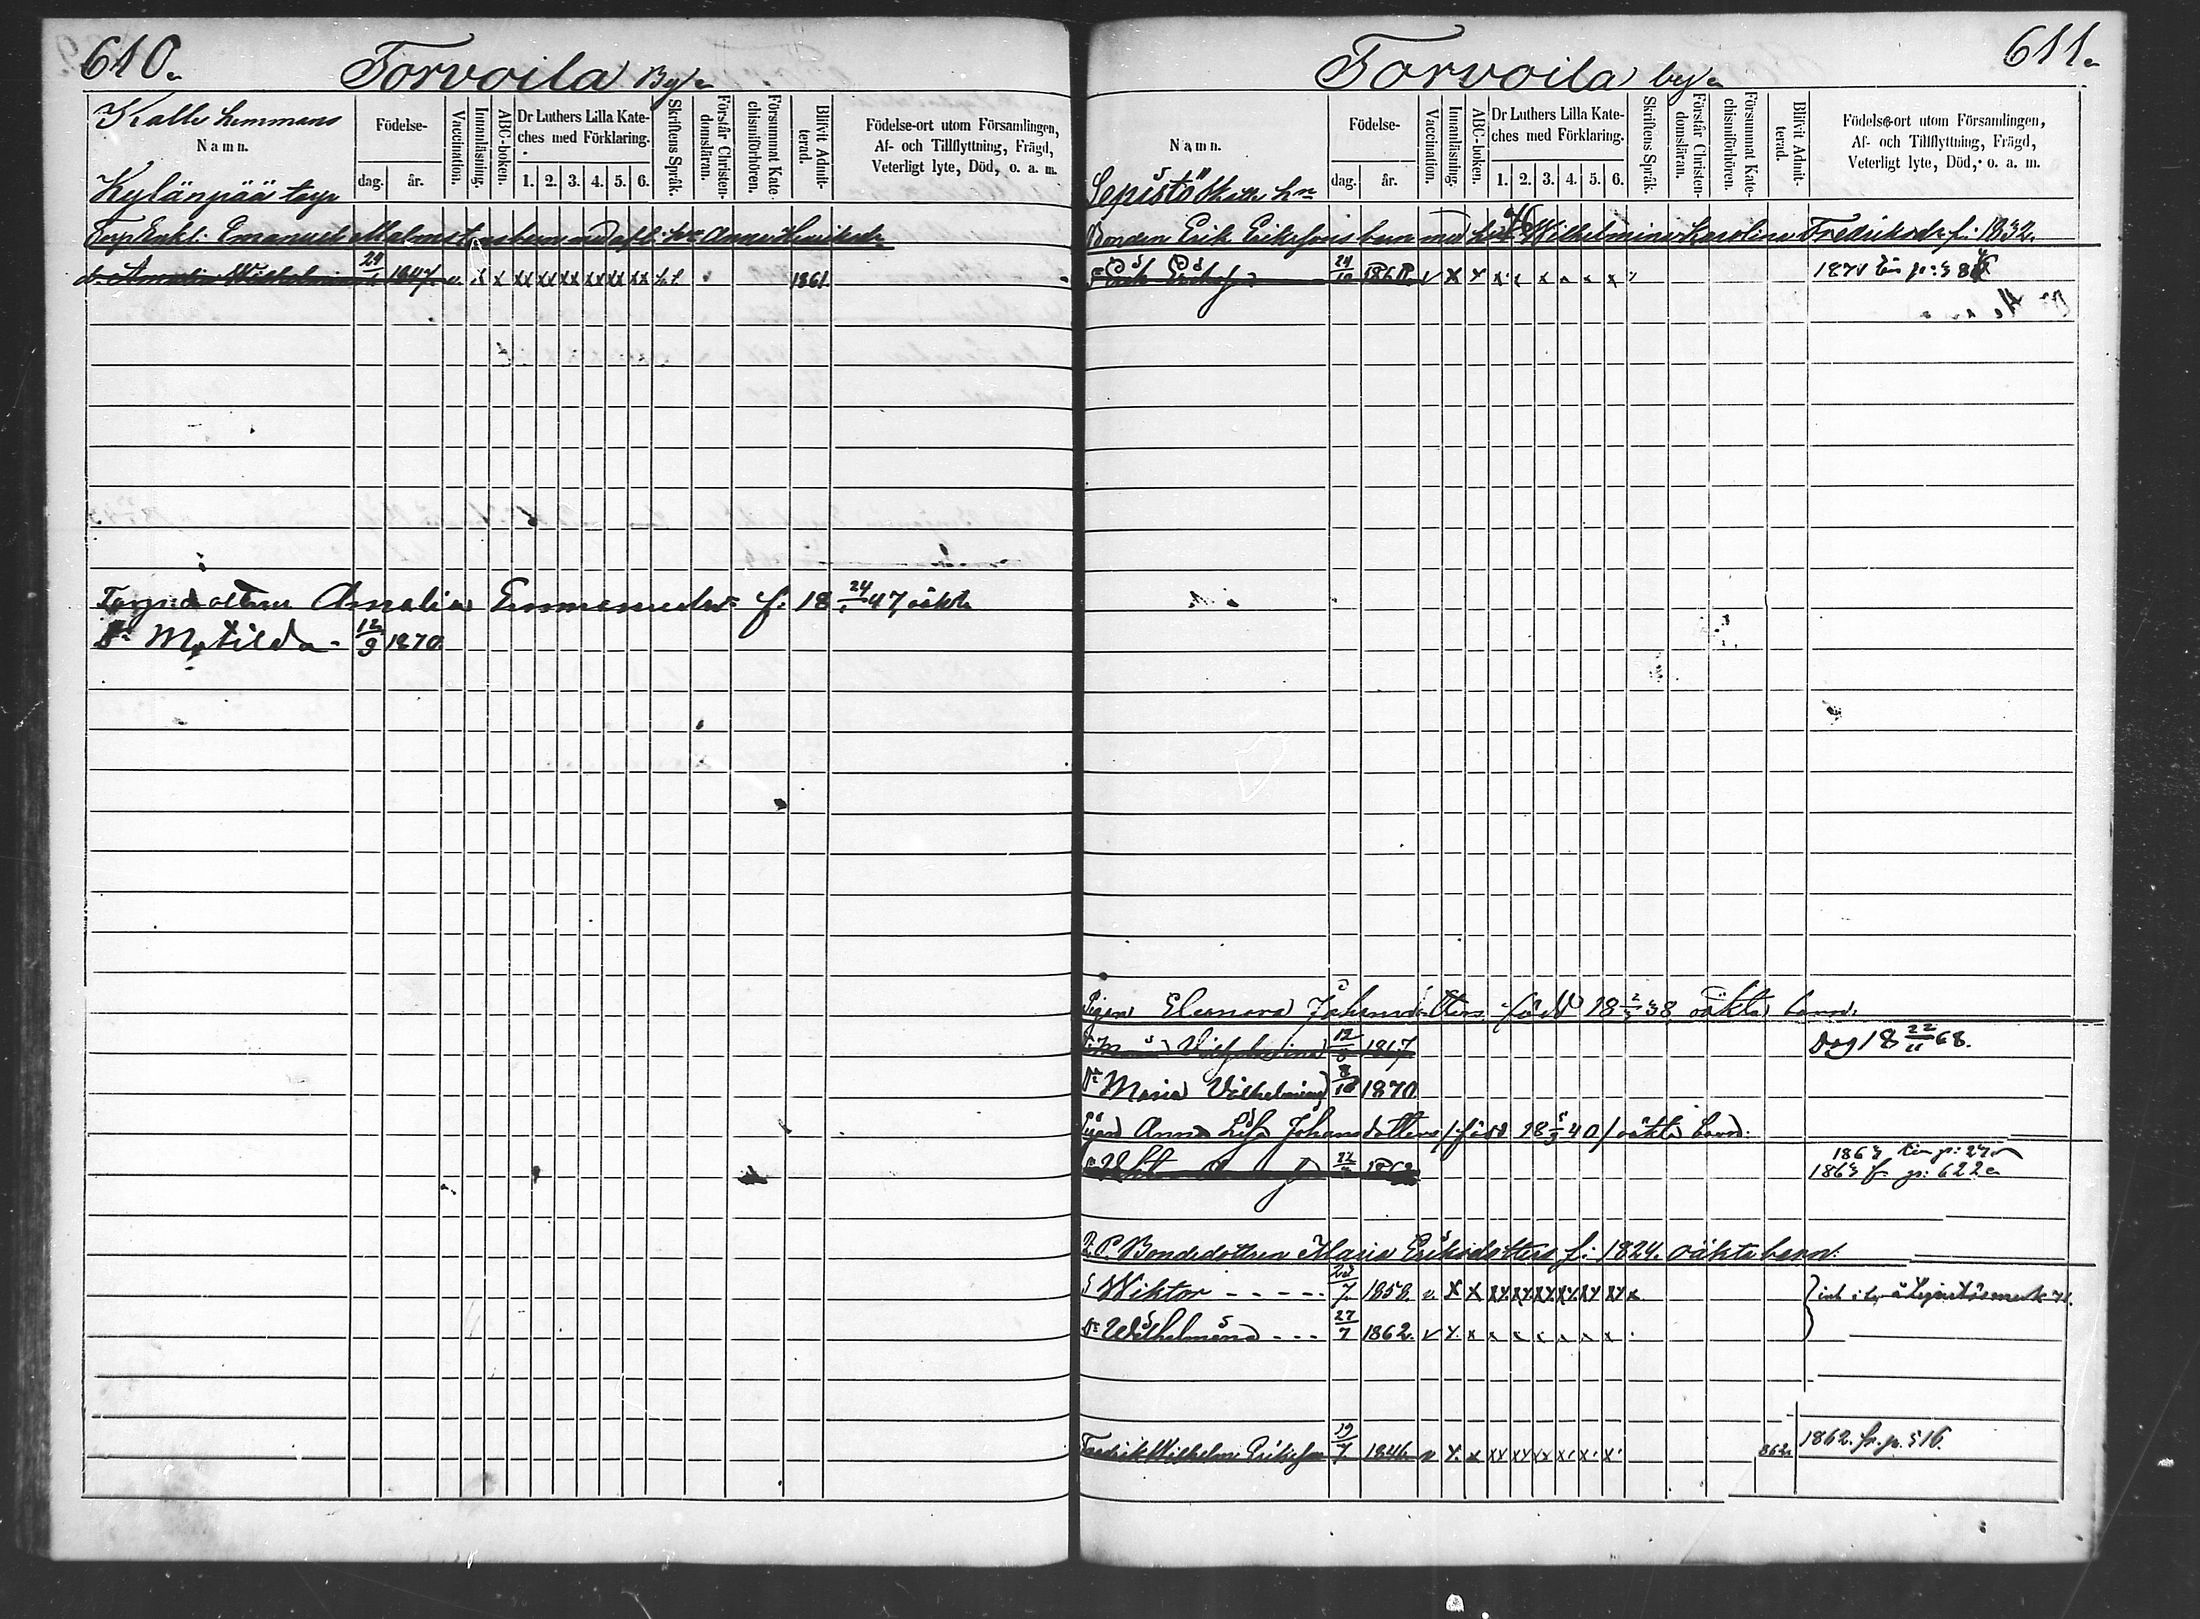 610.
Torvoila By
Kalle hemmans
Namn.
Födelse-
dag.
år.
Vaccination.
Innanläsning.
ABC-boken.
Dr Luthers Lilla Kate-
ches med Förklaring.
1. 2. 3. 4. 5. 6.
Skriftens Språk.
Förstår Christen-
domsläran.
Försummat Kate-
chismiförhören.
Blifvit Admit-
terad.
Födelse-ort utom Församlingen,
Af- och Tillflyttning, Frägd,
Veterligt lyte, Död, o. a. m.
Kylänpää torp
Emanuel barn med Anna Henriksdr
d. Amalia Wilhelmina 24 1847. v. x x xx xx xx xx xx xx 1861.
Torp:dottern Amalia f: 18 24 47 oäkta
Dr Matilda - 12/9 1870.
611
Torvoila by
Namn.
Födelse-
dag.
år.
Vaccination.
Innanläsning.
ABC-boken.
Dr Luthers Lilla Kate-
ches med Förklaring.
1. 2. 3. 4. 5. 6.
Skriftens Språk.
Förstår Christen-
domsläran.
Försummat Kate-
chismiförhören.
Blifvit Admit-
terad.
Födelse-ort utom Församlingen,
Af- och Tillflyttning, Frägd,
Veterligt lyte, Död, o. a. m.
Sepistö Skatte hn
Bonden Erik Erikssons barn med Wilhelmina Karolina Fredriksdr f: 1832.
Erik 24/10
Pigan Eleonora Johansdotters född 18 38 oäkta barn.
Vilhelmina 12 1867 Dog 18 22/11 68.
Dr Maria Vilhelmina 8/10 1870
Pigan Anna Lisa Johansdotters född 18 40 oäkta barn:
1863 f. p: 622
Bondedottren Maria Eriksdotters f: 1824. oäkta barn:
S Wiktor - - - - - 7. 1858. v. x x xx xx xx xx xx xx x
Dr Wilhelmina - - - 27/7 1862. v x. x x x x x x x
Fredrik Wilhelm Eriksson 19/7. 1846. v x. x xx xx xx x. x. x. 1862. fr. p. 516.